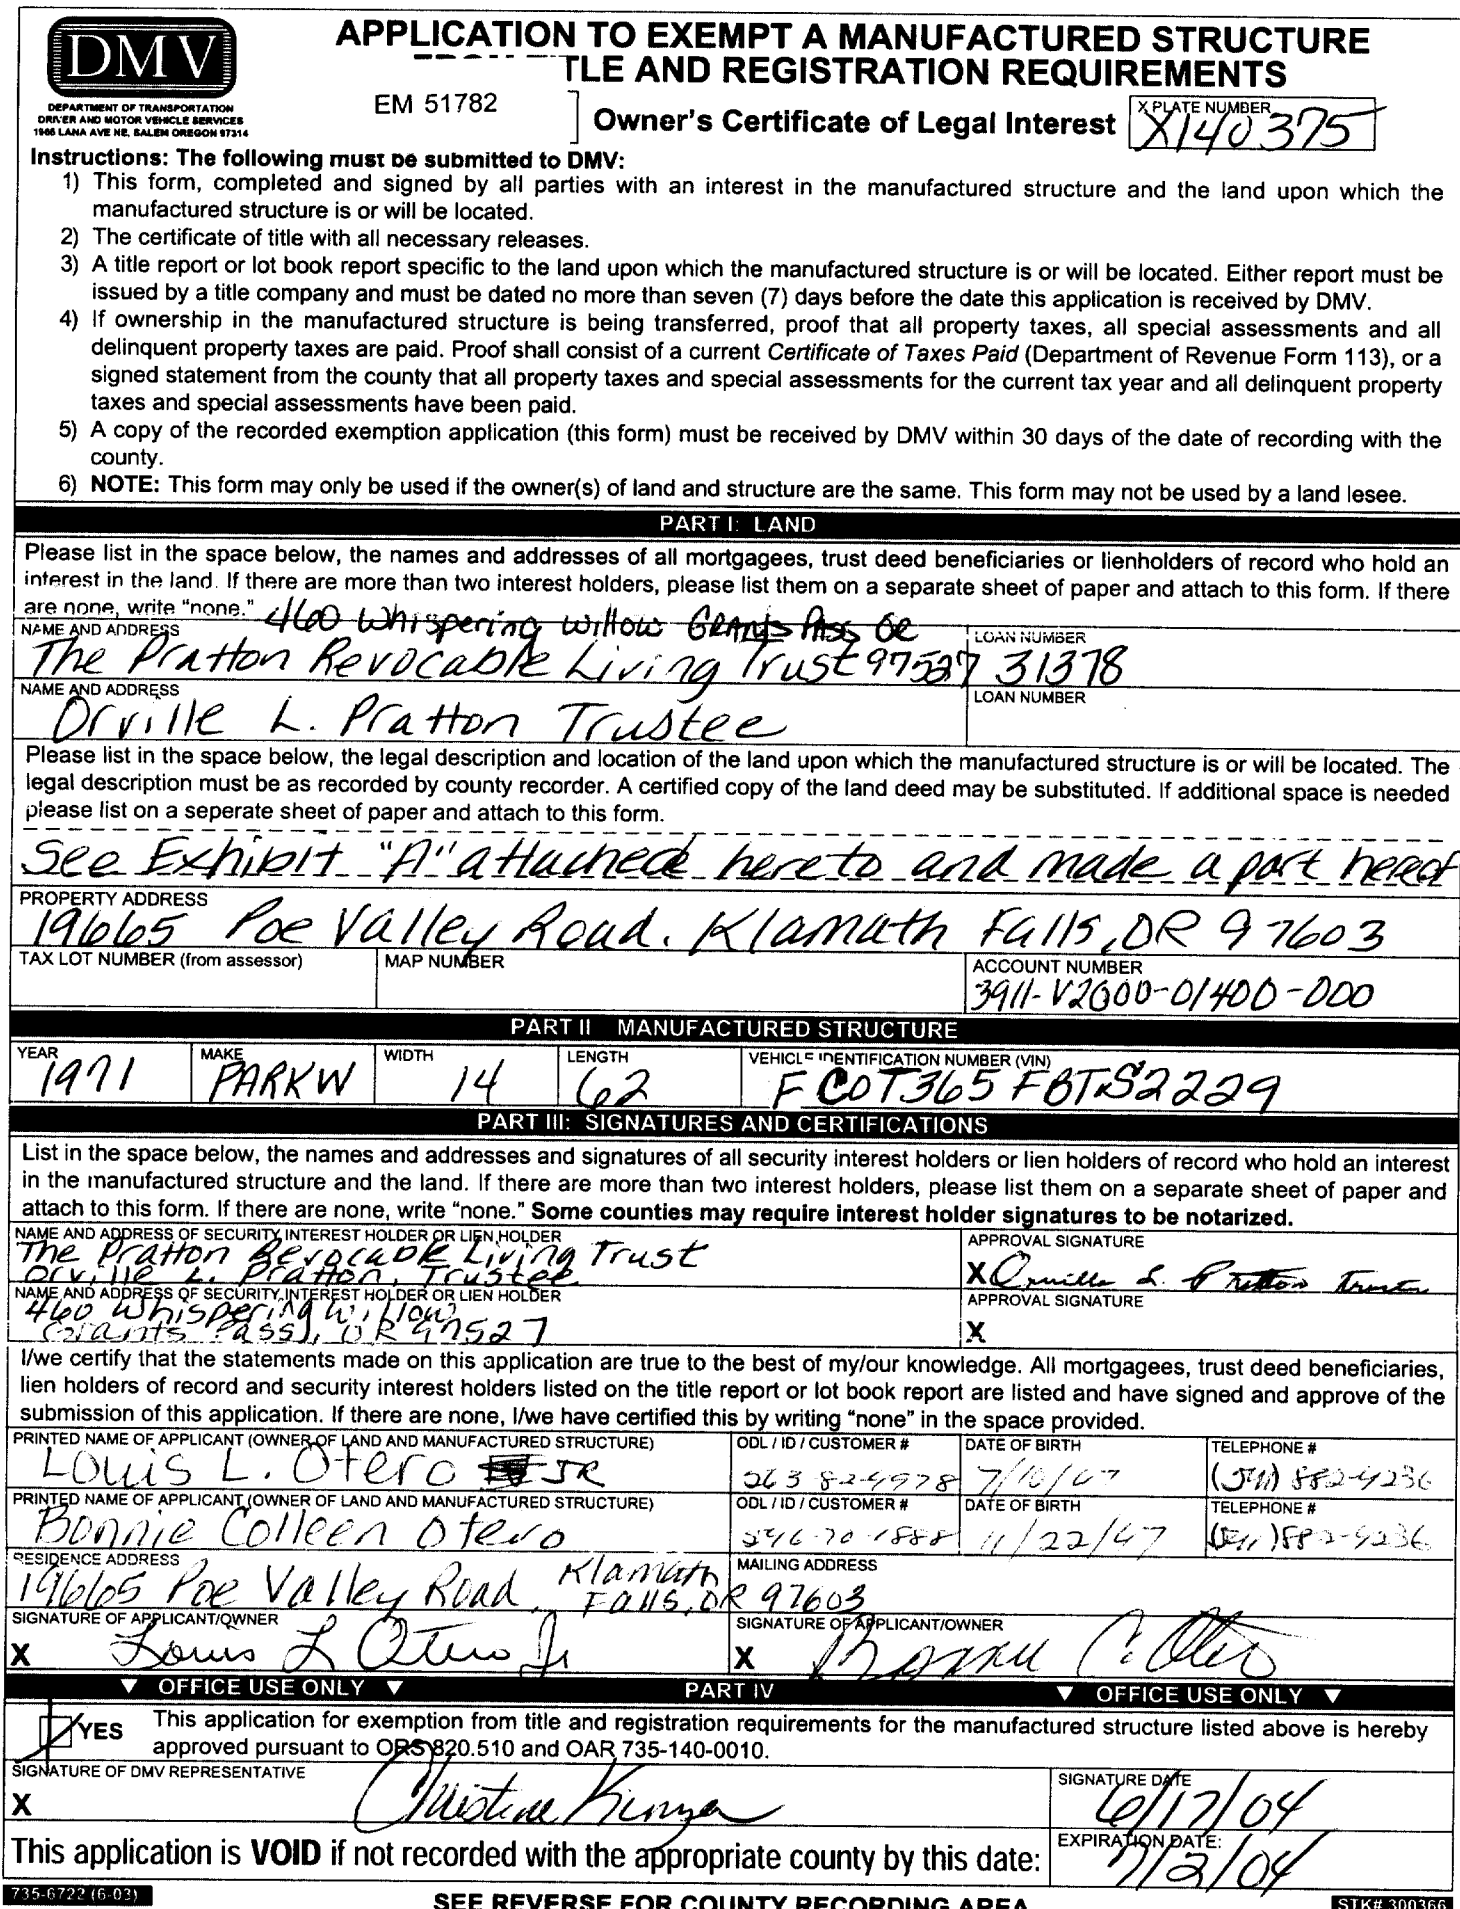 DMV
DEPARTMENT OF TRANSPORTATION
DRIVER AND MOTOR VEHICLE SERVICES
1905 LANA AVE NE, SALEM OREGON 97314
APPLICATION TO EXEMPT A MANUFACTURED STRUCTURE
TLE AND REGISTRATION REQUIREMENTS
EM 51782
Owner's Certificate of Legal Interest
X PLATE NUMBER
X140375
Instructions: The following must be submitted to DMV:
1) This form, completed and signed by all parties with an interest in the manufactured structure and the land upon which the
manufactured structure is or will be located.
2) The certificate of title with all necessary releases.
3) A title report or lot book report specific to the land upon which the manufactured structure is or will be located. Either report must be
issued by a title company and must be dated no more than seven (7) days before the date this application is received by DMV.
4) If ownership in the manufactured structure is being transferred, proof that all property taxes, all special assessments and all
delinquent property taxes are paid. Proof shall consist of a current Certificate of Taxes Paid (Department of Revenue Form 113), or a
signed statement from the county that all property taxes and special assessments for the current tax year and all delinquent property
taxes and special assessments have been paid.
5) A copy of the recorded exemption application (this form) must be received by DMV within 30 days of the date of recording with the
county.
6) NOTE: This form may only be used if the owner(s) of land and structure are the same. This form may not be used by a land lesee.
PART I: LAND
Please list in the space below, the names and addresses of all mortgagees, trust deed beneficiaries or lienholders of record who hold an
interest in the land. If there are more than two interest holders, please list them on a separate sheet of paper and attach to this form. If there
are none, write "none." 460 Whispering Willow Grants Pass OR
NAME AND ADDRESS
The Pratton Revocable Living Trust 97527
LOAN NUMBER
31378
NAME AND ADDRESS
Orville L. Pratton Trustee
LOAN NUMBER
Please list in the space below, the legal description and location of the land upon which the manufactured structure is or will be located. The
legal description must be as recorded by county recorder. A certified copy of the land deed may be substituted. If additional space is needed
please list on a seperate sheet of paper and attach to this form.
See Exhibit "A" attached hereto and made a part hereof
PROPERTY ADDRESS
19665 Poe Valley Road. Klamath Falls, OR 97603
TAX LOT NUMBER (from assessor)
MAP NUMBER
ACCOUNT NUMBER
3911-V2000-01400-000
PART II MANUFACTURED STRUCTURE
YEAR
1971
MAKE
PARKW
WIDTH
14
LENGTH
62
VEHICLE IDENTIFICATION NUMBER (VIN)
FCOT365FBTS2229
PART III: SIGNATURES AND CERTIFICATIONS
List in the space below, the names and addresses and signatures of all security interest holders or lien holders of record who hold an interest
in the manufactured structure and the land. If there are more than two interest holders, please list them on a separate sheet of paper and
attach to this form. If there are none, write "none." Some counties may require interest holder signatures to be notarized.
NAME AND ADDRESS OF SECURITY INTEREST HOLDER OR LIEN HOLDER
The Pratton Revocable Living Trust
Orville L. Pratton, Trustee
APPROVAL SIGNATURE
X Orville L. Pratton Trustee
NAME AND ADDRESS OF SECURITY INTEREST HOLDER OR LIEN HOLDER
460 Whispering Willow
Grants Pass, OR 97527
APPROVAL SIGNATURE
X
I/we certify that the statements made on this application are true to the best of my/our knowledge. All mortgagees, trust deed beneficiaries,
lien holders of record and security interest holders listed on the title report or lot book report are listed and have signed and approve of the
submission of this application. If there are none, I/we have certified this by writing "none" in the space provided.
PRINTED NAME OF APPLICANT (OWNER OF LAND AND MANUFACTURED STRUCTURE)
Louis L. Otero JR
ODL / ID / CUSTOMER #
263 82-4978
DATE OF BIRTH
7/10/47
TELEPHONE #
(541) 882-4236
PRINTED NAME OF APPLICANT (OWNER OF LAND AND MANUFACTURED STRUCTURE)
Bonnie Colleen Otero
ODL / ID / CUSTOMER #
546-70-1888
DATE OF BIRTH
11/22/47
TELEPHONE #
(541) 882-4236
RESIDENCE ADDRESS
19665 Poe Valley Road, Klamath
Falls, OR 97603
MAILING ADDRESS
SIGNATURE OF APPLICANT/OWNER
X Louis L Otero Jr
SIGNATURE OF APPLICANT/OWNER
X Bonnie C. Otero
▼ OFFICE USE ONLY ▼ PART IV ▼ OFFICE USE ONLY ▼
YES
This application for exemption from title and registration requirements for the manufactured structure listed above is hereby
approved pursuant to ORS 820.510 and OAR 735-140-0010.
SIGNATURE OF DMV REPRESENTATIVE
X Christine
SIGNATURE DATE
6/17/04
This application is VOID if not recorded with the appropriate county by this date:
EXPIRATION DATE:
7/2/04
735-6722 (6-03)
SEE REVERSE FOR COUNTY RECORDING AREA
STK# 300366